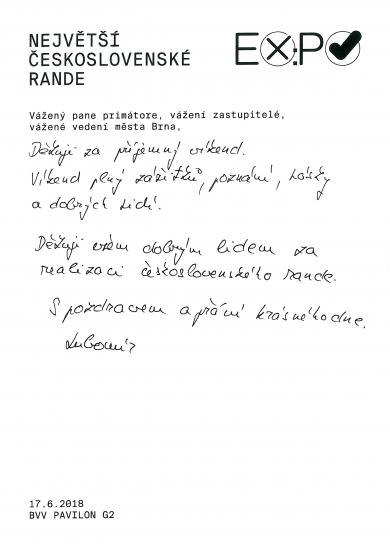 NEJVĚTŠÍ
ČESKOSLOVENSKÉ
RANDE
EXPO
Vážený pane primátore, vážení zastupitelé,
vážené vedení města Brna,
Děkuji za příjemný víkend.
Víkend plný zážitků, poznání, lásky
a dobrých lidí.
Děkuji všem dobrým lidem za
realizaci československého rande.
S pozdravem a přání krásného dne.
Lubomír
17.6.2018
BVV PAVILON G2